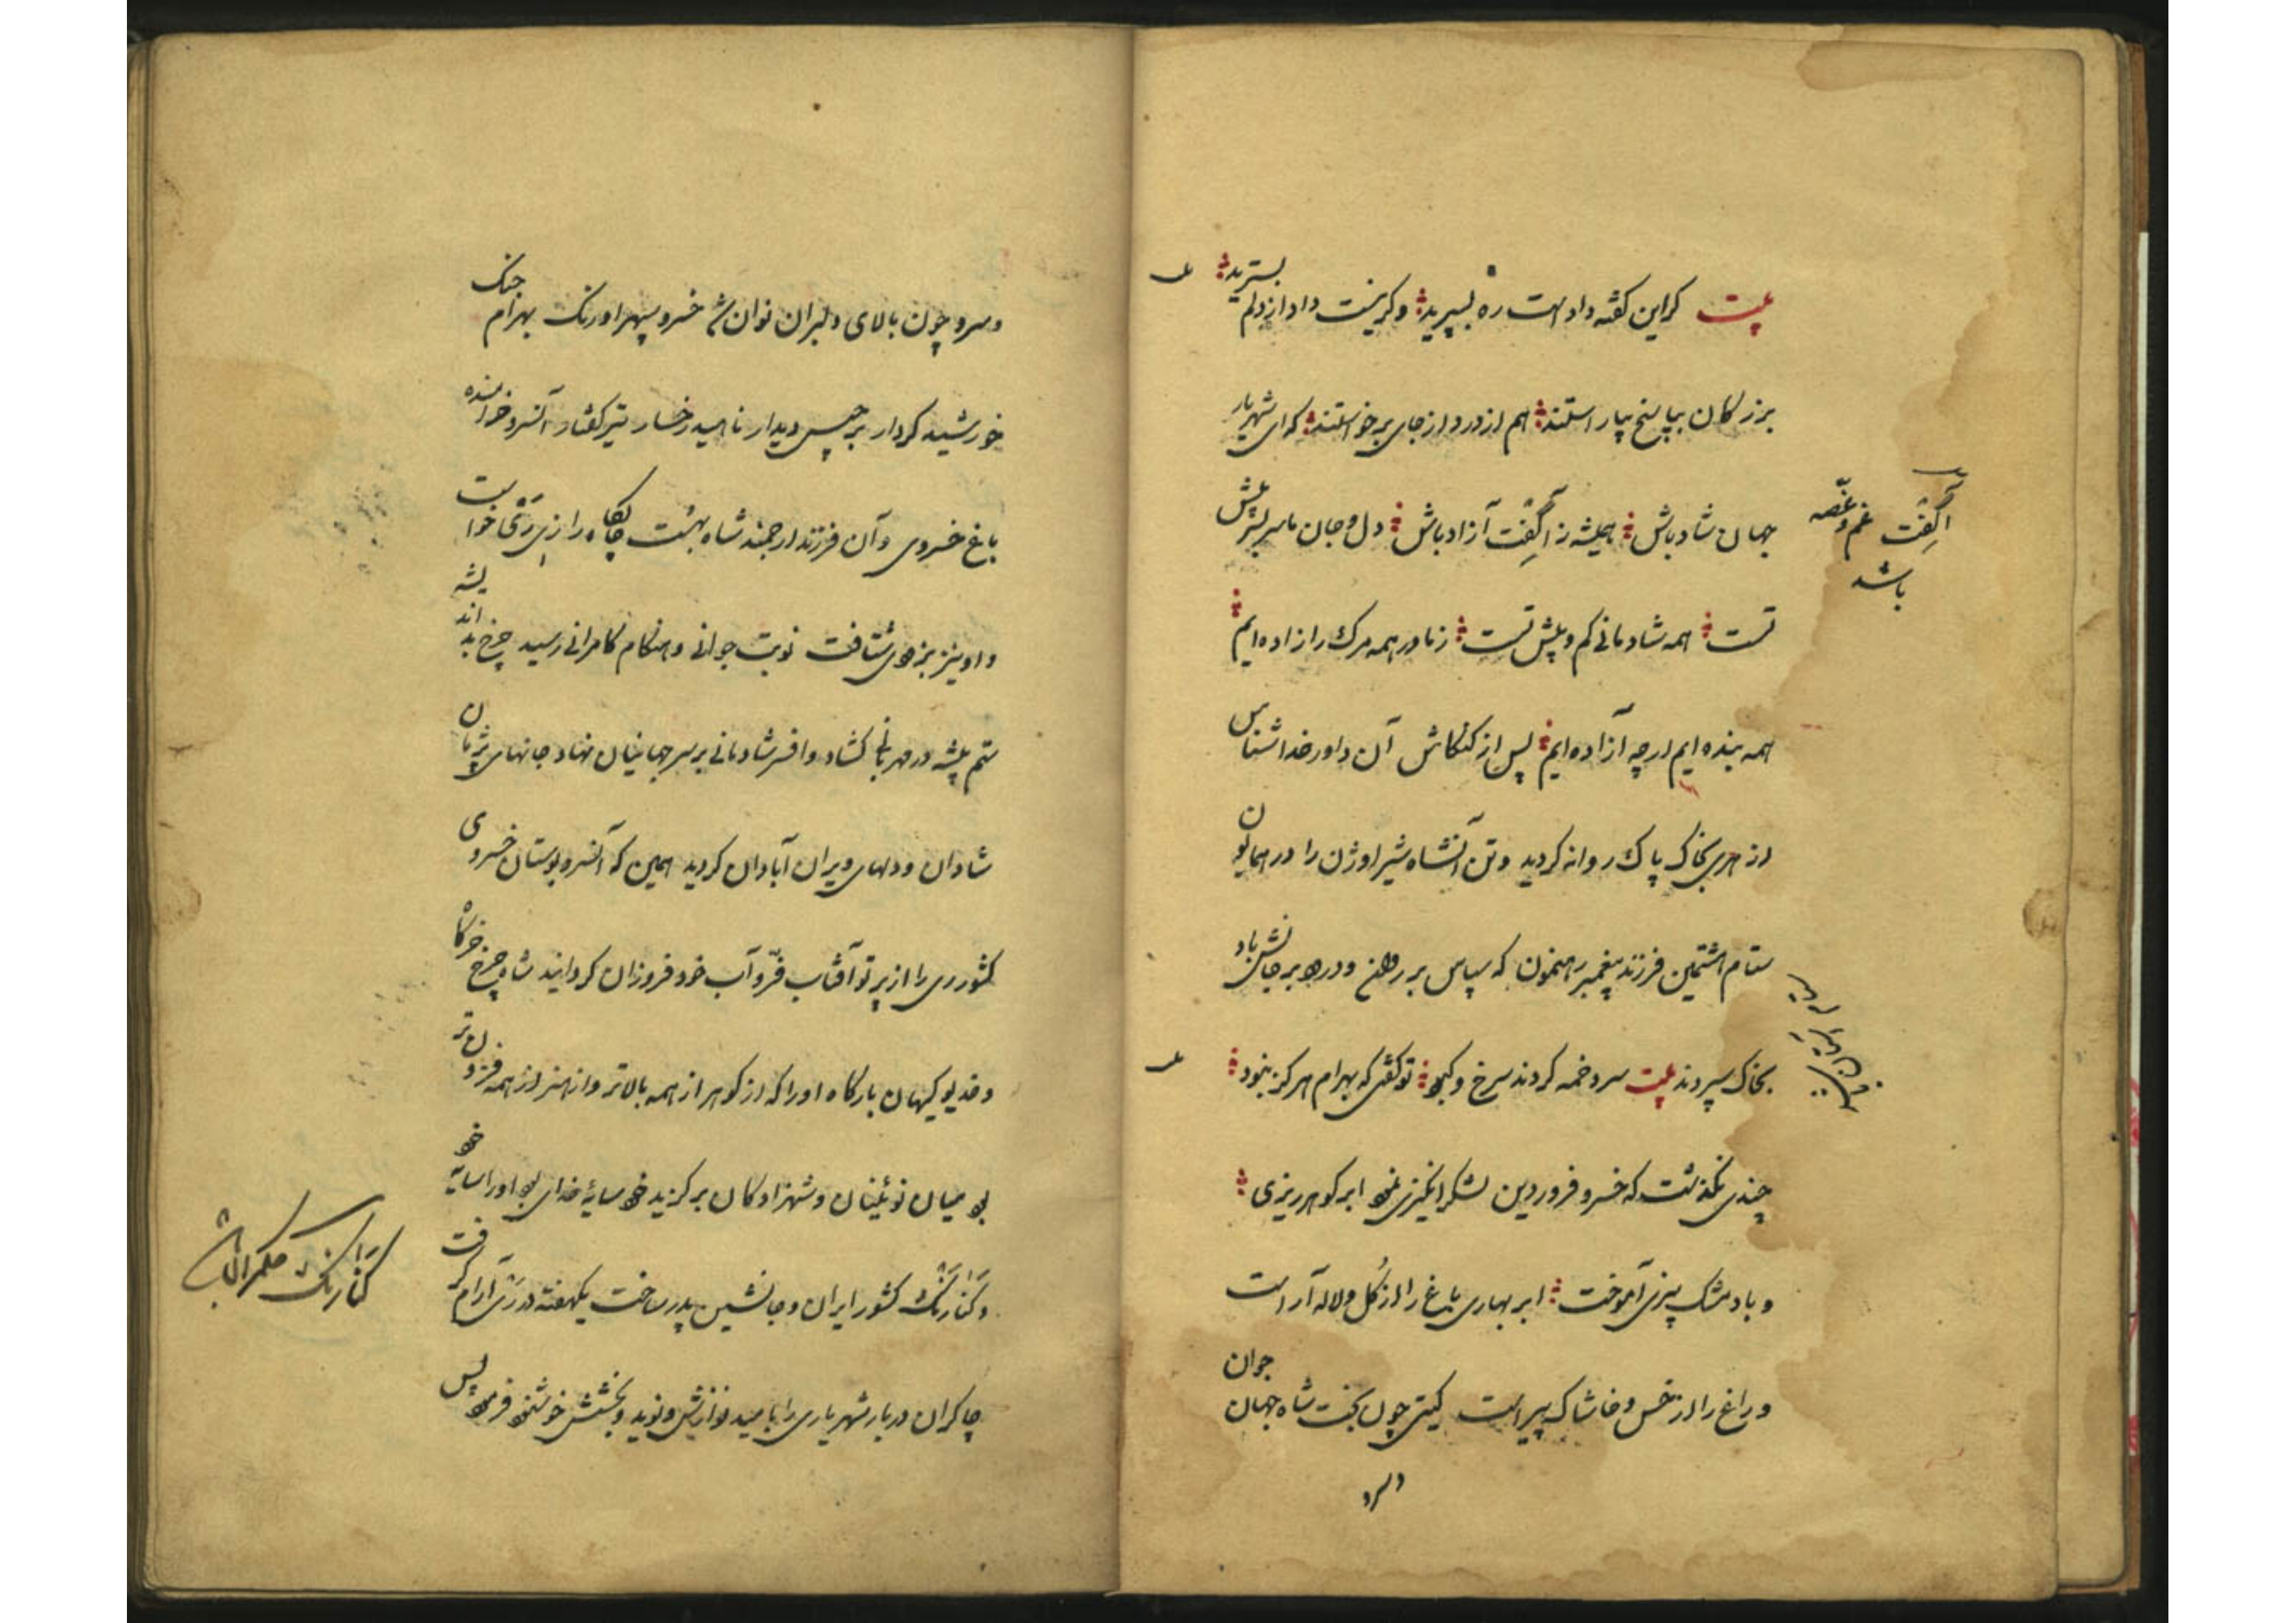 بیت کر این کفته داد است ره بسپرید وکر نیست داد از دلم بسترید
بزرکان بپاسخ بیاراستند هم از درد از جای برخواستند که ای شهریار
جهان شاد باش همیشه ز آکفت آزاد باش دل و جان ما سربسر پیش
تست همه شادمانی کم و بیش تست ز مادر همه مرک را زاده ایم
همه بنده ایم ارچه آزاده ایم پس از کنکاش آن داور خداشناس
از هری بخاک پاک روانه کردید وتن آنشاه شیر اوژن را در همایون
ستام هشتمین فرزند پیغمبر رهنمون که سپاس بر روان ودرود بر جانش باد
بخاک سپردند بیت سر دخمه کردند سرخ و کبود تو کفتی که بهرام هرکز نبود
چندی نکذشت که خسرو فروردین لشکر انکیزی نمود ابر کوهر ریزی
و باد مشک بیزی آموخت ابر بهاری باغ را از کل و لاله آراست
و راغ را از خس و خاشاک پیراست کیتی چون بخت شاه جهان جوان
وسرو
آکفت غم و غصه
باشد
وسرو چون بالای دلبران نوان شد خسرو سپهر اورنک بهرام جنک
خورشید کردار برجیس دیدار ناهید رخسار تیر کفتار آنسرو خرامنده
باغ خسروی و آن فرزند ارجمند شاه بهشت جایکاه را از ری بتخا خواست
و او نیز بزودی شتافت نوبت جوانی و هنکام کامرانی رسید چرخ بد اندیشه
ستم پیشه در مهربانی کشاد و افسر شادمانی بر سر جهانیان نهاد جانهای پژمان
شادان و دلهای ویران آبادان کردید همین که آنسرو بوستان خسروی
کشور ری را از پرتو آفتاب فرّ و آب خود فروزان کردانید شاه چرخ خرکاه
و خدیو کیهان بارکاه او را که از کوهر از همه بالاتر و از هنر از همه فزون تر
بود میان نوئینان و شهزادکان برکزید خود سایهٔ خدای بود او را سایه خود
وکنارنک کشور ایران و جانشین پدر ساخت یکهفته در ری آرام کرفت
چاکران دربار شهریاری را بامید نوازش و نوید و بخشش خوشنود فرمود پس
کنارنک حکمران باشد